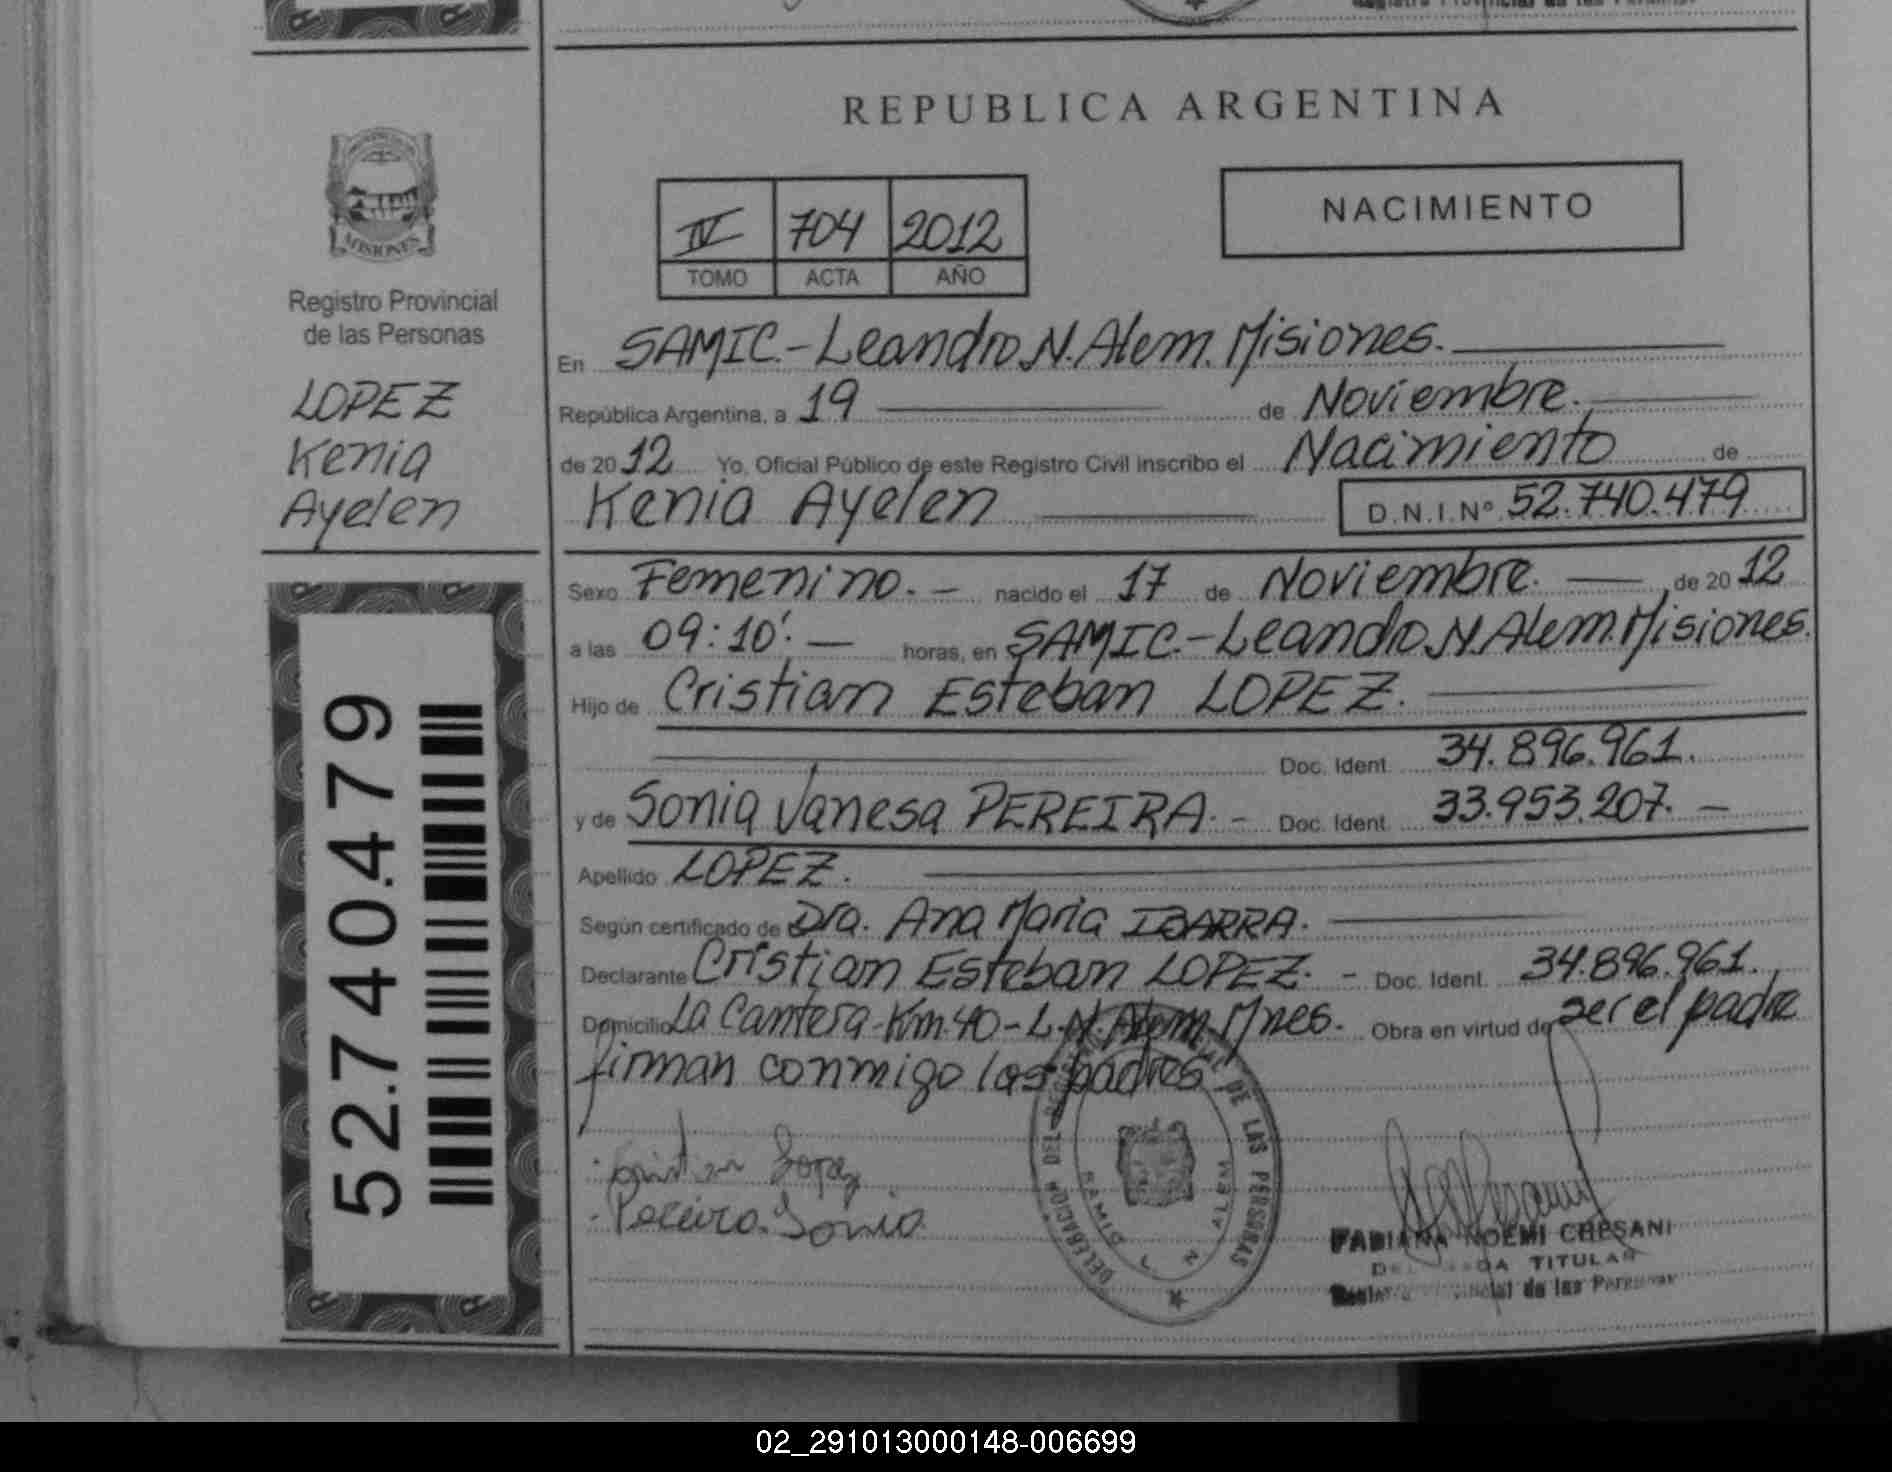 REPUBLICA ARGENTINA
MISIONES
Registro Provincial
de las Personas
LOPEZ
Kenia
Ayelen
52.740.479
IV 704 2012
TOMO ACTA AÑO
NACIMIENTO
En SAMIC.-Leandro N. Alem. Misiones.
República Argentina, a 19 de Noviembre.
de 2012 Yo, Oficial Público de este Registro Civil inscribo el Nacimiento de
Kenia Ayelen D.N.I.Nº 52.740.479
Sexo Femenino.- nacido el 17 de Noviembre. de 2012
a las 09:10'.- horas, en SAMIC.-Leandro N. Alem. Misiones.
Hijo de Cristian Esteban LOPEZ.
Doc. Ident. 34.896.961.
y de Sonia Vanesa PEREIRA.- Doc. Ident. 33.953.207.-
Apellido LOPEZ.
Según certificado de Dra. Ana Maria IBARRA.
Declarante Cristian Esteban LOPEZ.- Doc. Ident. 34.896.961.
Domicilio La Cantera-Km.40-L.N.Alem.Mnes. Obra en virtud de ser el padre
firman conmigo los padres
Cristian Lopez
Pereira Sonia
DELEGACION DEL REGISTRO DE LAS PERSONAS
SAMIC L N ALEM
FABIANA NOEMI CRESANI
TITULAR
de las Personas
02_291013000148-006699